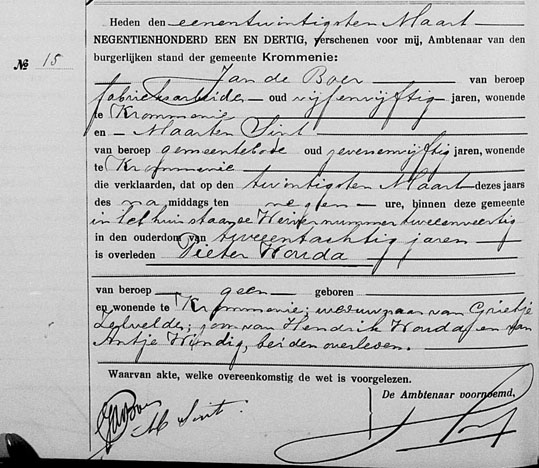 Heden den eenentwintigsten Maart
NEGENTIENHONDERD EEN EN DERTIG, verschenen voor mij, Ambtenaar van den
burgerlijken stand der gemeente Krommenie:
№ 15
Jan de Boer van beroep
fabrieksarbeider oud vijfenvijftig jaren, wonende
te Krommenie
en Maarten Sint
van beroep gemeentebode oud zevenenvijftig jaren, wonende
te Krommenie
die verklaarden, dat op den twintigsten Maart dezes jaars
des na middags ten negen ure, binnen deze gemeente
in het huis staande nummer tweeenveertig
in den ouderdom van tweeentachtig jaren
is overleden Pieter Houda
van beroep geen geboren
en wonende te Krommenie; weduwnaar van Grietje
zoon van Hendrik Houda en van
Antje beiden overleden.
Waarvan akte, welke overeenkomstig de wet is voorgelezen.
De Ambtenaar voornoemd,
M Sint.